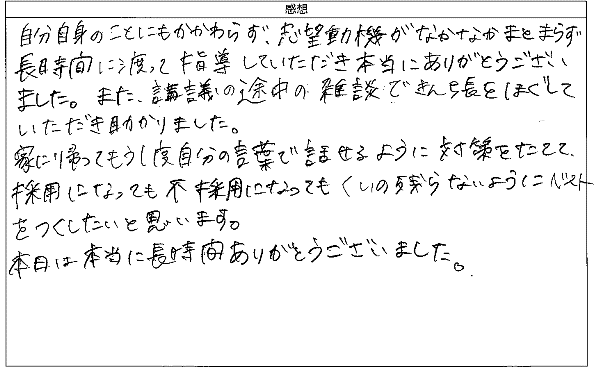 感想
自分自身のことにもかかわらず、志望動機がなかなかまとまらず
長時間に渡って指導していただき本当にありがとうござい
ました。また、講議の途中の雑談できんち長をほぐして
いただき助かりました。
家に帰ってもう1度自分の言葉で話せるように対策をたてて、
採用になっても不採用になってもくいの残らないようにベスト
をつくしたいと思います。
本日は本当に長時間ありがとうございました。